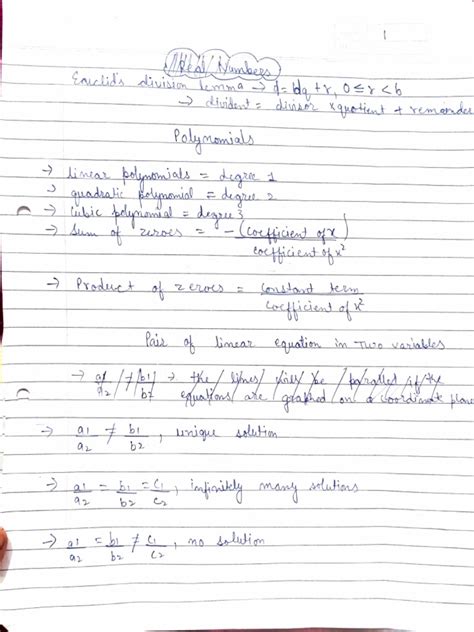 1
Real Numbers
Euclid's division lemma → a = bq + r, 0 ≤ r < b
→ divident = divisor x quotient + remainder
Polynomials
→ linear polynomials = degree 1
→ quadratic polynomial = degree 2
→ Cubic polynomial = degree 3
→ Sum of zeroes = - (coefficient of x)
coefficient of x²
→ Product of zeroes = constant term
coefficient of x²
Pair of linear equation in Two variables
→ a1/a2 ≠ b1/b2 → the lines will be parallel if the
equations are graphed on a coordinate plane
→ a1/a2 ≠ b1/b2, unique solution
→ a1/a2 = b1/b2 = c1/c2, infinitely many solutions
→ a1/a2 = b1/b2 ≠ c1/c2, no solution